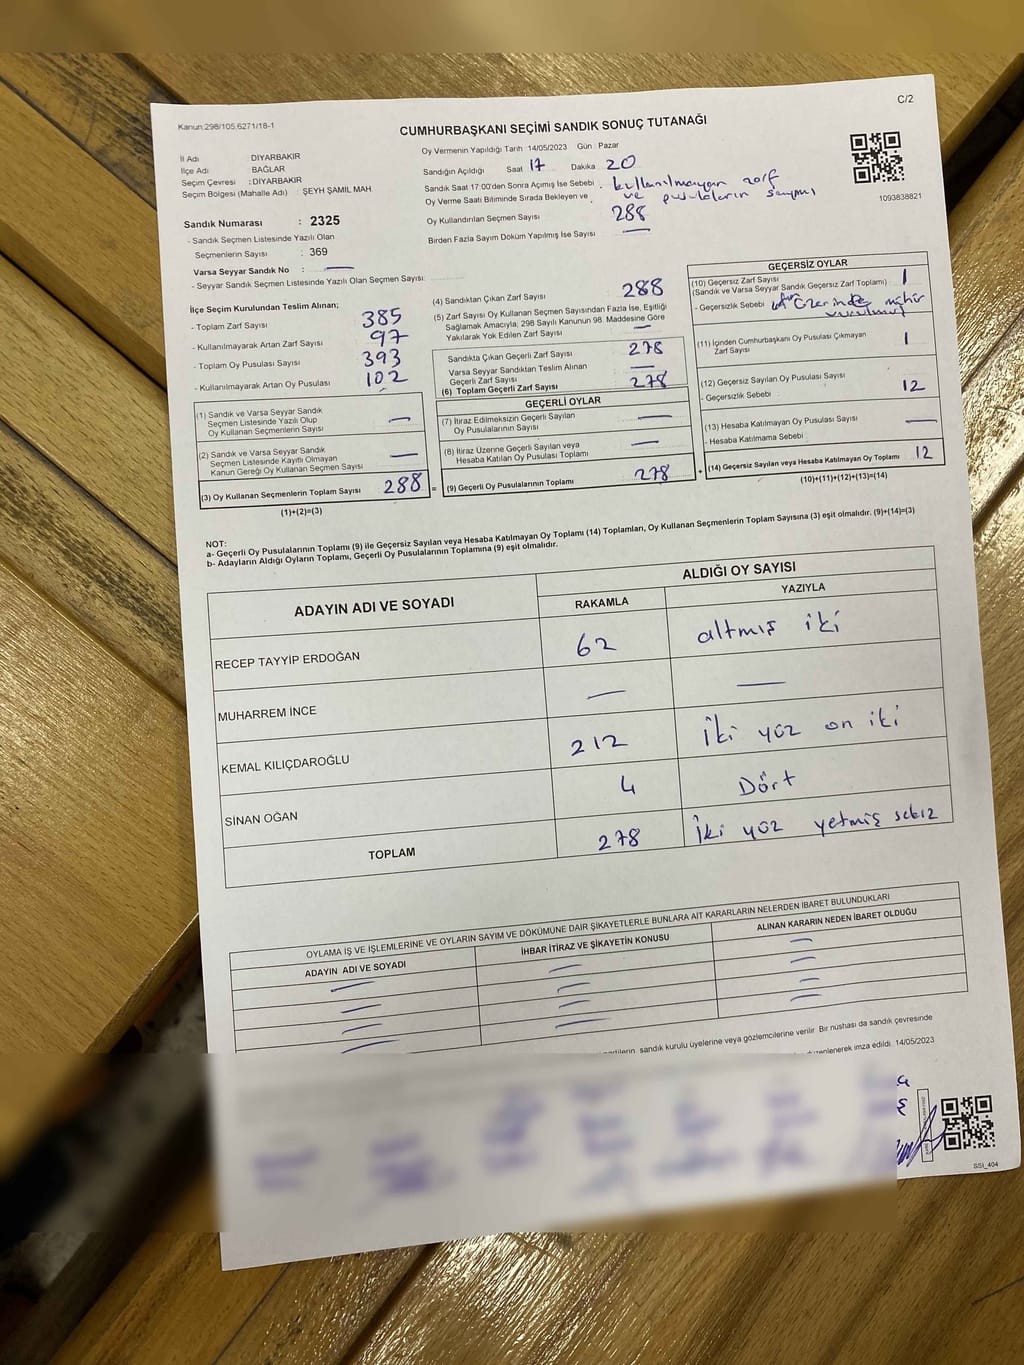 Kanun:298/105,6271/18-1
C/2
CUMHURBAŞKANI SEÇİMİ SANDIK SONUÇ TUTANAĞI
İl Adı DİYARBAKIR
İlçe Adı : BAĞLAR
Seçim Çevresi : DİYARBAKIR
Seçim Bölgesi (Mahalle Adı) : ŞEYH ŞAMİL MAH
Sandık Numarası : 2325
- Sandık Seçmen Listesinde Yazılı Olan
Seçmenlerin Sayısı : 369
Varsa Seyyar Sandık No : —
- Seyyar Sandık Seçmen Listesinde Yazılı Olan Seçmen Sayısı:
Oy Vermenin Yapıldığı Tarih :14/05/2023 Gün : Pazar
Sandığın Açıldığı Saat 17 Dakika 20
Sandık Saat 17:00'den Sonra Açımış İse Sebebi : kullanılmayan zarf
Oy Verme Saati Bitiminde Sırada Bekleyen ve : ve pusulaların sayımı
Oy Kullandırılan Seçmen Sayısı 288
Birden Fazla Sayım Döküm Yapılmış İse Sayısı —
1093838821
İlçe Seçim Kurulundan Teslim Alınan;
- Toplam Zarf Sayısı 385
- Kullanılmayarak Artan Zarf Sayısı 97
- Toplam Oy Pusulası Sayısı 393
- Kullanılmayarak Artan Oy Pusulası 102
(1) Sandık ve Varsa Seyyar Sandık
Seçmen Listesinde Yazılı Olup
Oy Kullanan Seçmenlerin Sayısı —
(2) Sandık ve Varsa Seyyar Sandık
Seçmen Listesinde Kayıtlı Olmayan
Kanun Gereği Oy Kullanan Seçmen Sayısı —
(3) Oy Kullanan Seçmenlerin Toplam Sayısı 288 =
(1)+(2)=(3)
(4) Sandıktan Çıkan Zarf Sayısı 288
(5) Zarf Sayısı Oy Kullanan Seçmen Sayısından Fazla İse, Eşitliği
Sağlamak Amacıyla, 298 Sayılı Kanunun 98. Maddesine Göre
Yakılarak Yok Edilen Zarf Sayısı —
Sandıkta Çıkan Geçerli Zarf Sayısı 278
Varsa Seyyar Sandıktan Teslim Alınan
Geçerli Zarf Sayısı —
(6) Toplam Geçerli Zarf Sayısı 278
GEÇERLİ OYLAR
(7) İtiraz Edilmeksizin Geçerli Sayılan
Oy Pusulalarının Sayısı —
(8) İtiraz Üzerine Geçerli Sayılan veya
Hesaba Katılan Oy Pusulası Toplamı —
(9) Geçerli Oy Pusulalarının Toplamı 278 +
GEÇERSİZ OYLAR
(10) Geçersiz Zarf Sayısı 1
(Sandık ve Varsa Seyyar Sandık Geçersiz Zarf Toplamı)
- Geçersizlik Sebebi üzerinde mühür
(11) İçinden Cumhurbaşkanı Oy Pusulası Çıkmayan
Zarf Sayısı 1
(12) Geçersiz Sayılan Oy Pusulası Sayısı 12
- Geçersizlik Sebebi :
(13) Hesaba Katılmayan Oy Pusulası Sayısı —
- Hesaba Katılmama Sebebi :
(14) Geçersiz Sayılan veya Hesaba Katılmayan Oy Toplamı 12
(10)+(11)+(12)+(13)=(14)
NOT:
a- Geçerli Oy Pusulalarının Toplamı (9) ile Geçersiz Sayılan veya Hesaba Katılmayan Oy Toplamı (14) Toplamları, Oy Kullanan Seçmenlerin Toplam Sayısına (3) eşit olmalıdır. (9)+(14)=(3)
b- Adayların Aldığı Oyların Toplamı, Geçerli Oy Pusulalarının Toplamına (9) eşit olmalıdır.
ADAYIN ADI VE SOYADI
ALDIĞI OY SAYISI
RAKAMLA YAZIYLA
RECEP TAYYİP ERDOĞAN 62 altmış iki
MUHARREM İNCE — —
KEMAL KILIÇDAROĞLU 212 İki yüz on iki
SİNAN OĞAN 4 Dört
TOPLAM 278 İki yüz yetmiş sekiz
OYLAMA İŞ VE İŞLEMLERİNE VE OYLARIN SAYIM VE DÖKÜMÜNE DAİR ŞİKAYETLERLE BUNLARA AİT KARARLARIN NELERDEN İBARET BULUNDUKLARI
ADAYIN ADI VE SOYADI İHBAR İTİRAZ VE ŞİKAYETİN KONUSU ALINAN KARARIN NEDEN İBARET OLDUĞU
— — —
— — —
— — —
— — —
sandık kurulu üyelerine veya gözlemcilerine verilir. Bir nüshası da sandık çevresinde
düzenlenerek imza edildi. 14/05/2023
SSİ_404